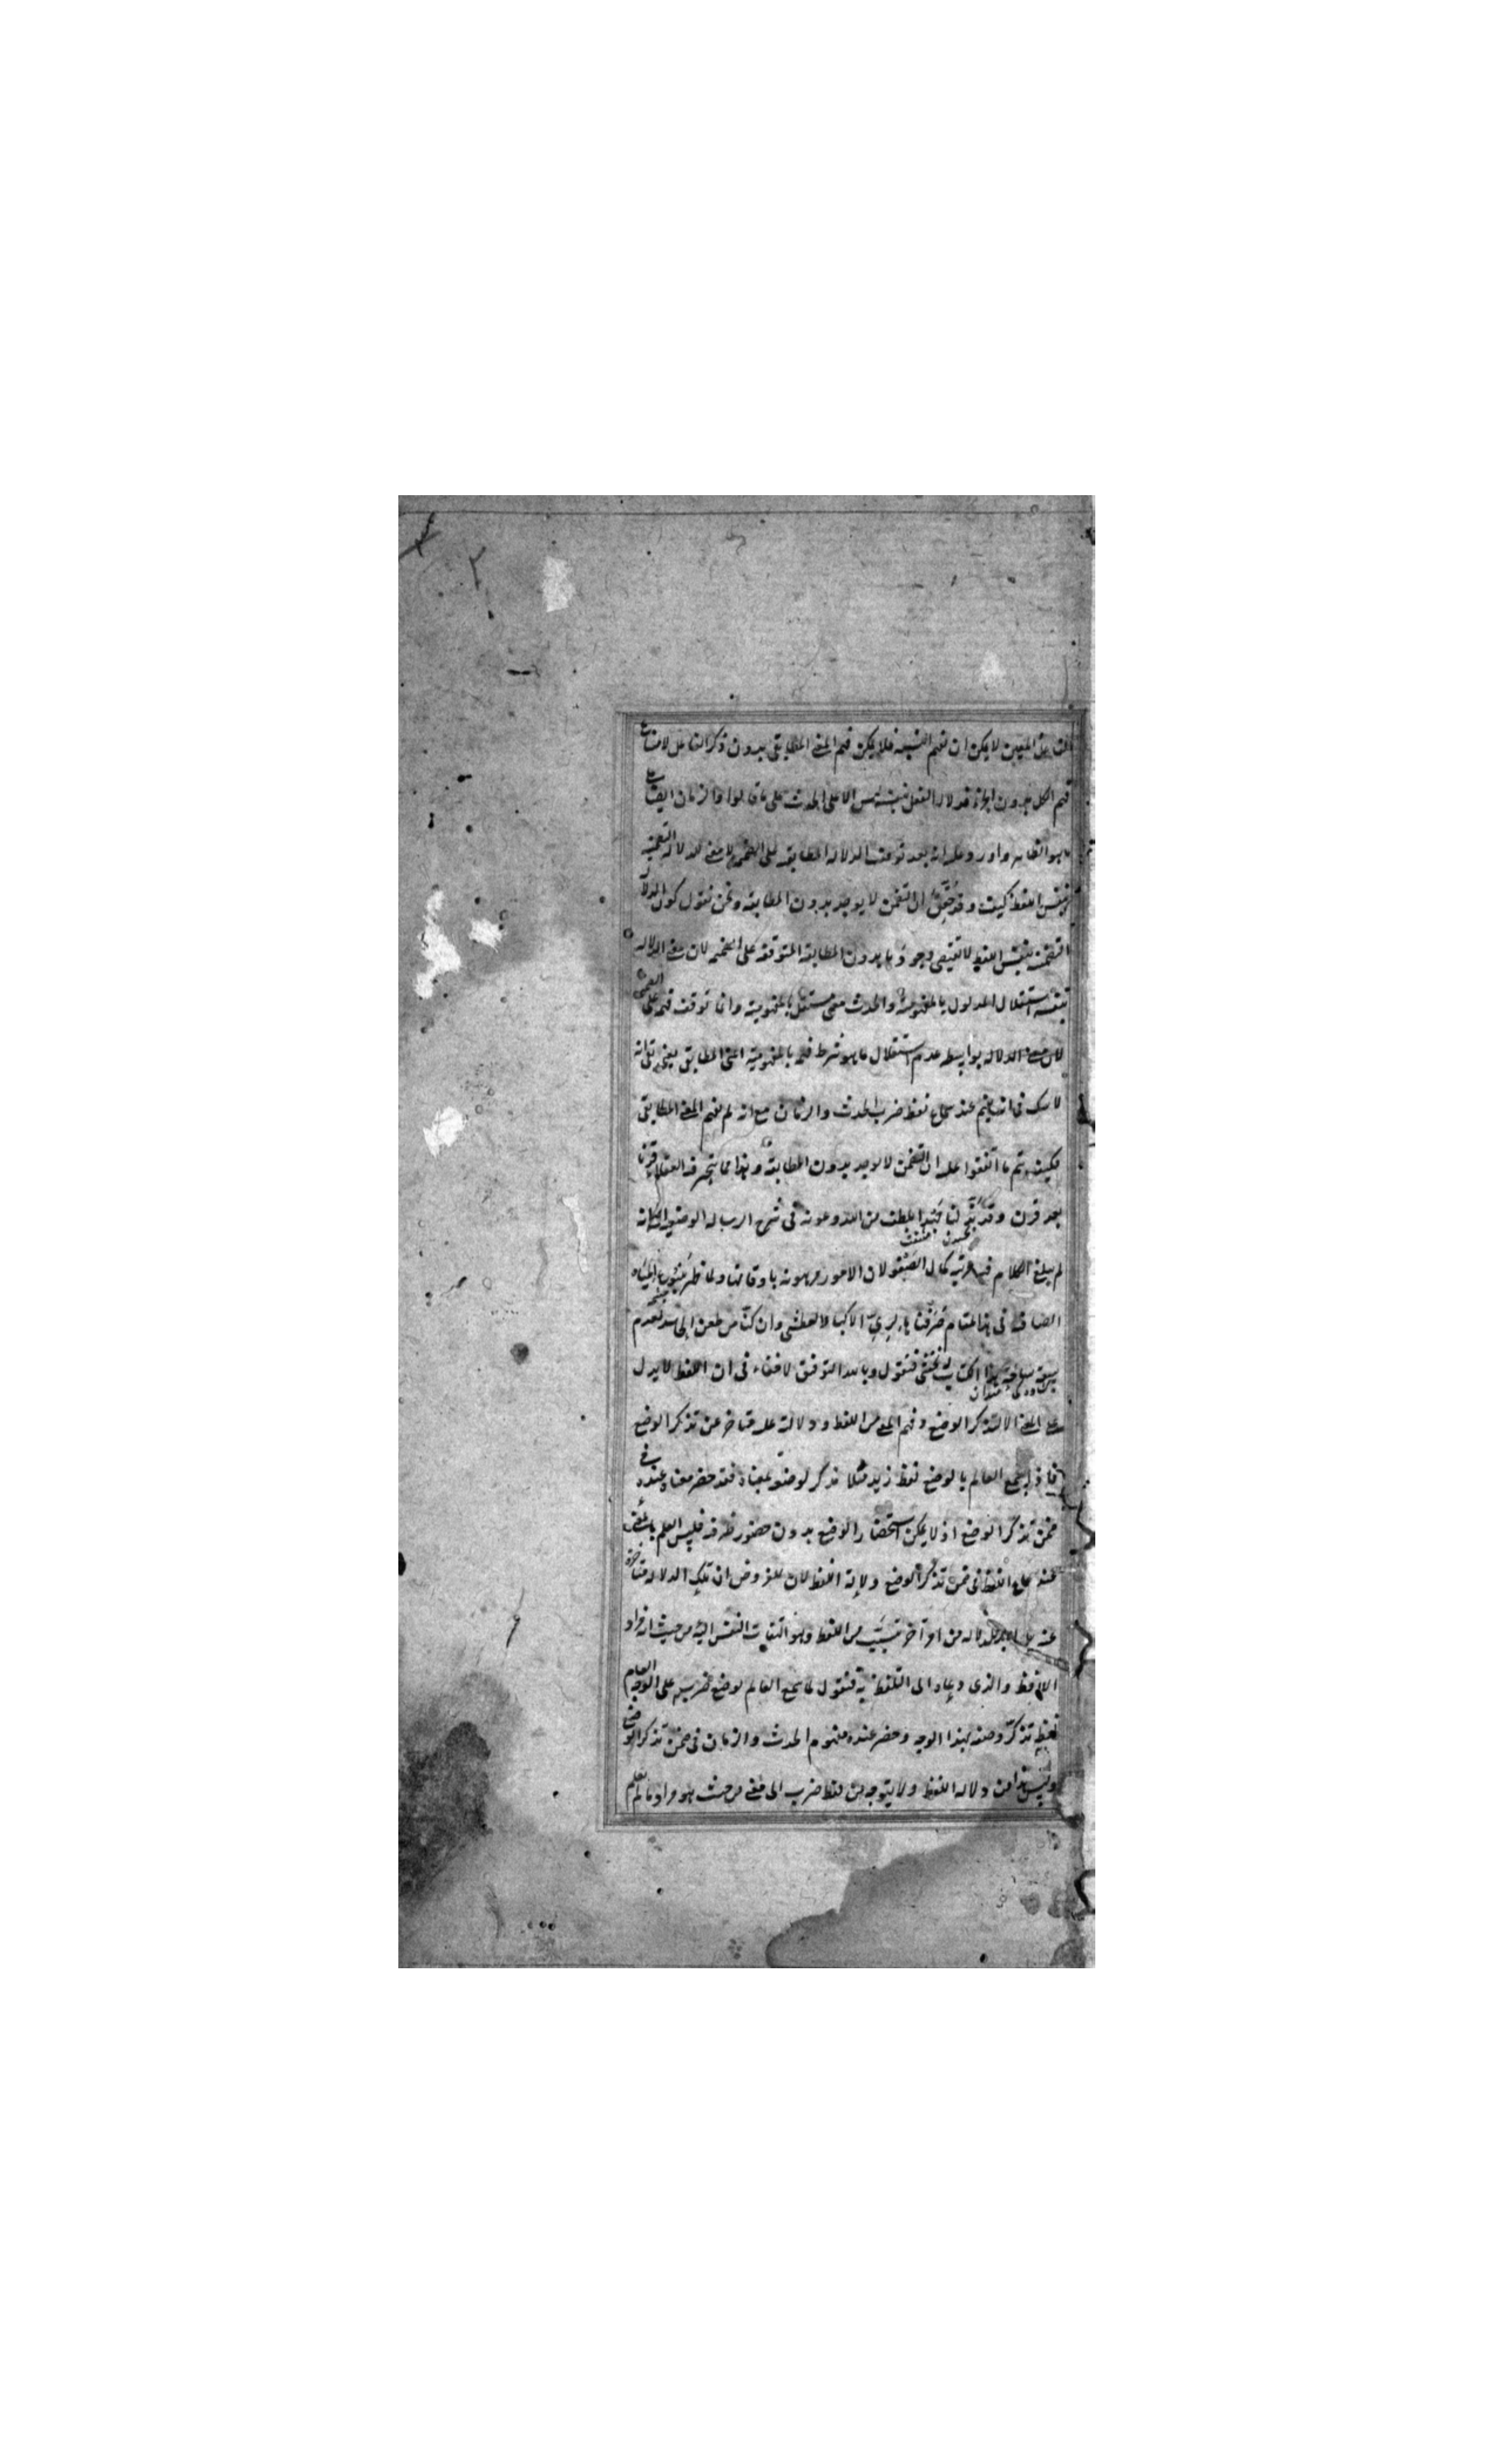 الفاعل المعين لا يمكن ان تفهم النسبة فلا يمكن فهم المعنى المطابقى بدون ذكر الفاعل لامتناع
فهم الكل بدون الجزء فدلالة الفعل بنفسه ليس الا على الحدث على ما قالوا والزمان ايضا على
ما هو الظاهر واورد عليه انه بعد توقف الدلالة المطابقة على الضميمة لا معنى لدلالة التضمنية
بنفس اللفظ كيف وقد حقق ان التضمن لا يوجد بدون المطابقة ونحن نقول كون الدلالة
التضمنية بنفس اللفظ لا تقتضى وجودها بدون المطابقة المتوقفة على الضميمة لان معنى الدلالة
بنفسه استقلال المدلول بالمفهومية والحدث معنى مستقل بالمفهومية وانما توقف فهمه على الضميمة
لا من الدلالة بواسطة عدم استقلال ما هو شرط فهمه بالمفهومية اعنى المطابقى بقى انه
لا شك فى انه يفهم عند سماع لفظ ضرب الحدث والزمان مع انه لم يفهم المعنى المطابقى
فكيف يتم ما اتفقوا عليه ان التضمن لا يوجد بدون المطابقة وهذا مما يتحير فيه العقلاء قرنا
بعد قرن وقد لنا بلطف من الله وعونه فى شرح الرسالة الوضعية الا انه
لم يبلغ الكلام فيها مرتبة كمال لان الامور مرهونة باوقاتها ولما ظهر المياه
الصاف فى هذا المقام الاكباد العطشى وان كنا من طعن
هذا الكتاب فنقول وبالله التوفيق لا خفاء فى ان اللفظ لا يدل
على المعنى الا لتذكر الوضع وفهم المعنى من اللفظ ودلالته عليه متاخر عن تذكر الوضع
فاذا سمع العالم بالوضع لفظ زيد مثلا تذكر لوضعه لمعناه فقد حضر معناه عنده فى
ضمن تذكر الوضع اذ لا يمكن استحضار الوضع بدون حضور طرفه فليس العلم بالمعنى
عند سماع اللفظ فى ضمن تذكر الوضع دلالة اللفظ لان المفروض ان تلك الدلالة متاخرة
عنه للدلالة من امر آخر بسبب من اللفظ وهو التفات النفس اليه من حيث انه مراد
اللافظ والذى دعاه الى التلفظ به فنقول لما سمع العالم لوضع ضرب على الوجه العام
لفظه تذكر وضعه بهذا الوجه وحضر عنده مفهوم الحدث والزمان فى ضمن تذكر الوضع
وليس هذا من دلالة اللفظ ولا يتوجه من لفظ ضرب الى معنى من حيث هو مراد ما لم يعلم